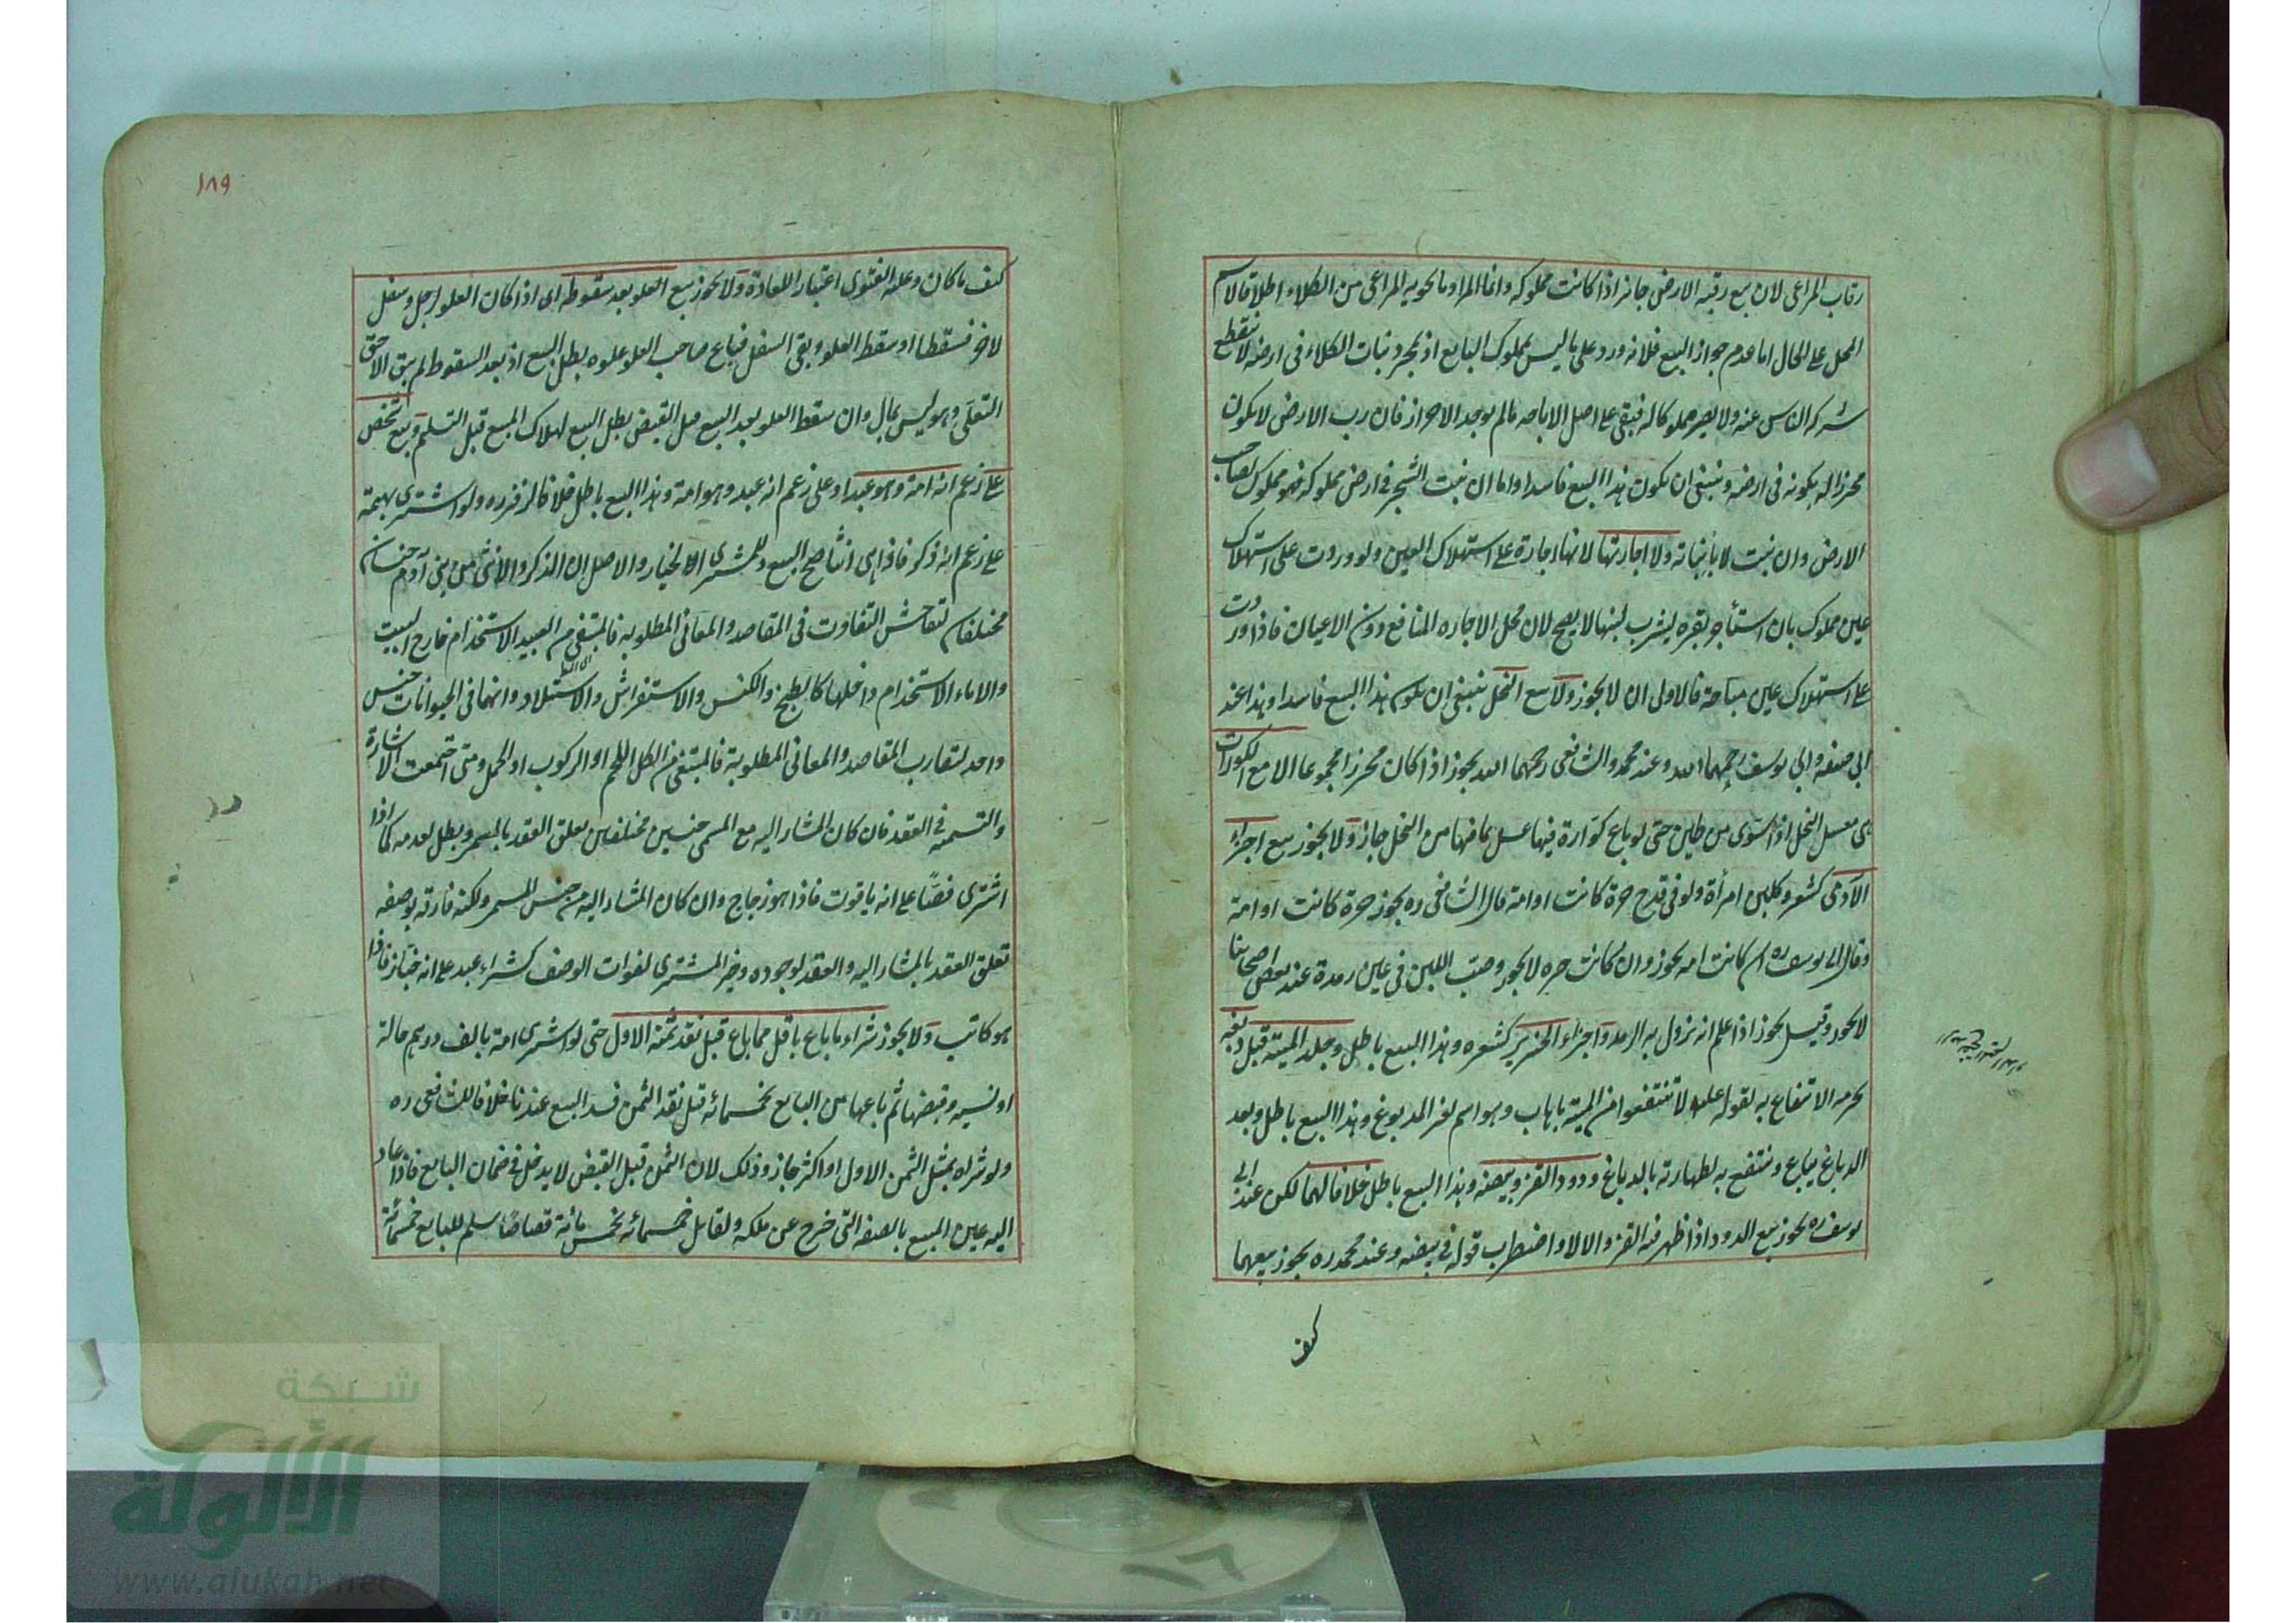 رقاب المراعى لان بيع رقبه الارض جائز اذا كانت مملوكه وانما المراد ما يحويه المراعى من الكلاء اطلاقا لاسم
المحل على الحال اما عدم جواز البيع فلانه ورد على ما ليس بمملوك البايع اذ بمجرد نبات الكلاء فى ارضه لا ينقطع
شركه الناس عنه ولا يصير مملوكا له فيبقى على اصل الاباحه ما لم يوجد الاحراز فان رب الارض لا يكون
محرزا له بكونه فى ارضه وينبغى ان يكون هذا البيع فاسدا واما ان نبت الشجر فى ارض مملوكه فهو مملوك لصاحب
الارض وان نبت لا بانباته ولا اجارتها لانها اجارة على استهلاك العين ولو وردت على استهلاك
عين مملوك بان استأجر بقره ليشرب لبنها لا يصح لان محل الاجاره المنافع دون الاعيان فاذا وردت
على استهلاك عين مباحة فالاولى ان لا يجوز ولا بيع النحل ينبغى ان يكون هذا البيع فاسدا وهذا عند
ابى حنيفه وابى يوسف رحمهما الله وعند محمد والشافعى رحمهما الله يجوز اذا كان محرزا مجموعا الا مع الكوارات
هى معسل النحل اذا سوى من طين حتى لو باع كوارة فيها عسل بما فيها من النحل جاز ولا يجوز بيع اجزاء
الآدمى كشعر وكلبن امرأة ولو فى قدح حرة كانت او امة قال الشافعى ره يجوز حرة كانت او امة
وقال ابى يوسف ره ان كانت امه يجوز وان كانت حره لا يجوز وصب اللبن فى عين رمدة عند بعض اصحابنا
لا يجوز وقيل يجوز اذا علم انه يزول به الرمد واجزاء الخنزير كشعره وهذا البيع باطل وجلد الميتة قبل دبغه
يحرمه الانتفاع به لقوله عليه لا تنتفعوا من الميتة باهاب وهو اسم لغير المدبوغ وهذا البيع باطل وبعد
الدباغ يباع وينتفع به لطهارته بالدباغ ودود القز وبيضه وهذا البيع باطل خلافا لهما لكن عند ابى
يوسف ره يجوز بيع الدود اذا ظهر فيه القز والا لا واضطرب قوله فى بيضه وعند محمد ره يجوز بيعهما
كيف
١٨٩
كيف ما كان وعليه الفتوى اعتبارا للعادة ولا يجوز بيع العلو بعد سقوطه اى اذا كان العلو لرجل وسفل
لاخر فسقطا او سقط العلو وبقى السفل فباع صاحب العلو علوه بطل البيع اذ بعد السقوط لم يبق الا حق
التعلى وهو ليس بمال وان سقط العلو بعد البيع قبل القبض بطل البيع لهلاك المبيع قبل التسليم وبيع شخص
على زعم انه امة وهو عبد او على زعم انه عبد وهو امة وهذا البيع باطل خلافا لزفر ره ولو اشترى بهيمة
على زعم انه ذكر فاذا هى انثى صح البيع وللمشترى الخيار والاصل ان الذكر والانثى من بنى آدم جنسان
مختلفان لتفاحش التفاوت فى المقاصد والمعانى المطلوبه فالمبتغى من العبيد الاستخدام خارج البيت
والاماء الاستخدام داخلها كالطبخ والكنس والاستفراش والاستيلاد وانهما فى الحيوانات جنس
واحد لتقارب المقاصد والمعانى المطلوبة فالمبتغى من الكل اللحم او الركوب او الحمل ومتى اجتمعت الاشارة
والتسميه فى العقد فان كان المشار اليه مع المسمى جنسين مختلفين يعلق العقد بالمسمى ويبطل لعدمه كما اذا
اشترى فصا على انه ياقوت فاذا هو زجاج وان كان المشار اليه من جنس المسمى ولكنه فارقه بوصفه
تعلق العقد بالمشار اليه والعقد لوجوده وخير المشترى لفوات الوصف كشراء عبد على انه خباز فاذا
هو كاتب ولا يجوز شراء ما باع باقل مما باع قبل نقد ثمنه الاول حتى لو اشترى امة بالف درهم حالة
او نسيه وقبضها ثم باعها من البايع بخمسمائه قبل نقد الثمن فسد البيع عندنا خلافا للشافعى ره
ولو شراه بمثل الثمن الاول او اكثر جاز وذلك لان الثمن قبل القبض لا يدخل فى ضمان البايع فاذا عاد
اليه عين المبيع بالصفه التى خرج عن ملكه ولقابل خمسمائه بخمسمائة قصاصا سلم للبايع خمسمائة
شبكة
الألولة
www.alukah.net